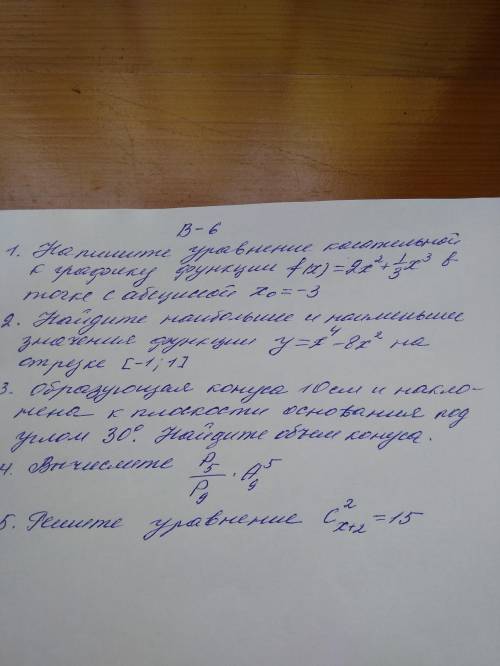 В-6
1. Напишите уравнение касательной
к графику функции f(x)=2x²+⅓x³ в
точке с абсциссой x₀=-3
2. Найдите наибольшее и наименьшее
значения функции y=x⁴-8x² на
отрезке [-1;1]
3. Образующая конуса 10см и накло-
нена к плоскости основания под
углом 30°. Найдите объем конуса.
4. Вычислите P₅/P₉ · A₉⁵
5. Решите уравнение C²ₓ₊₂=15